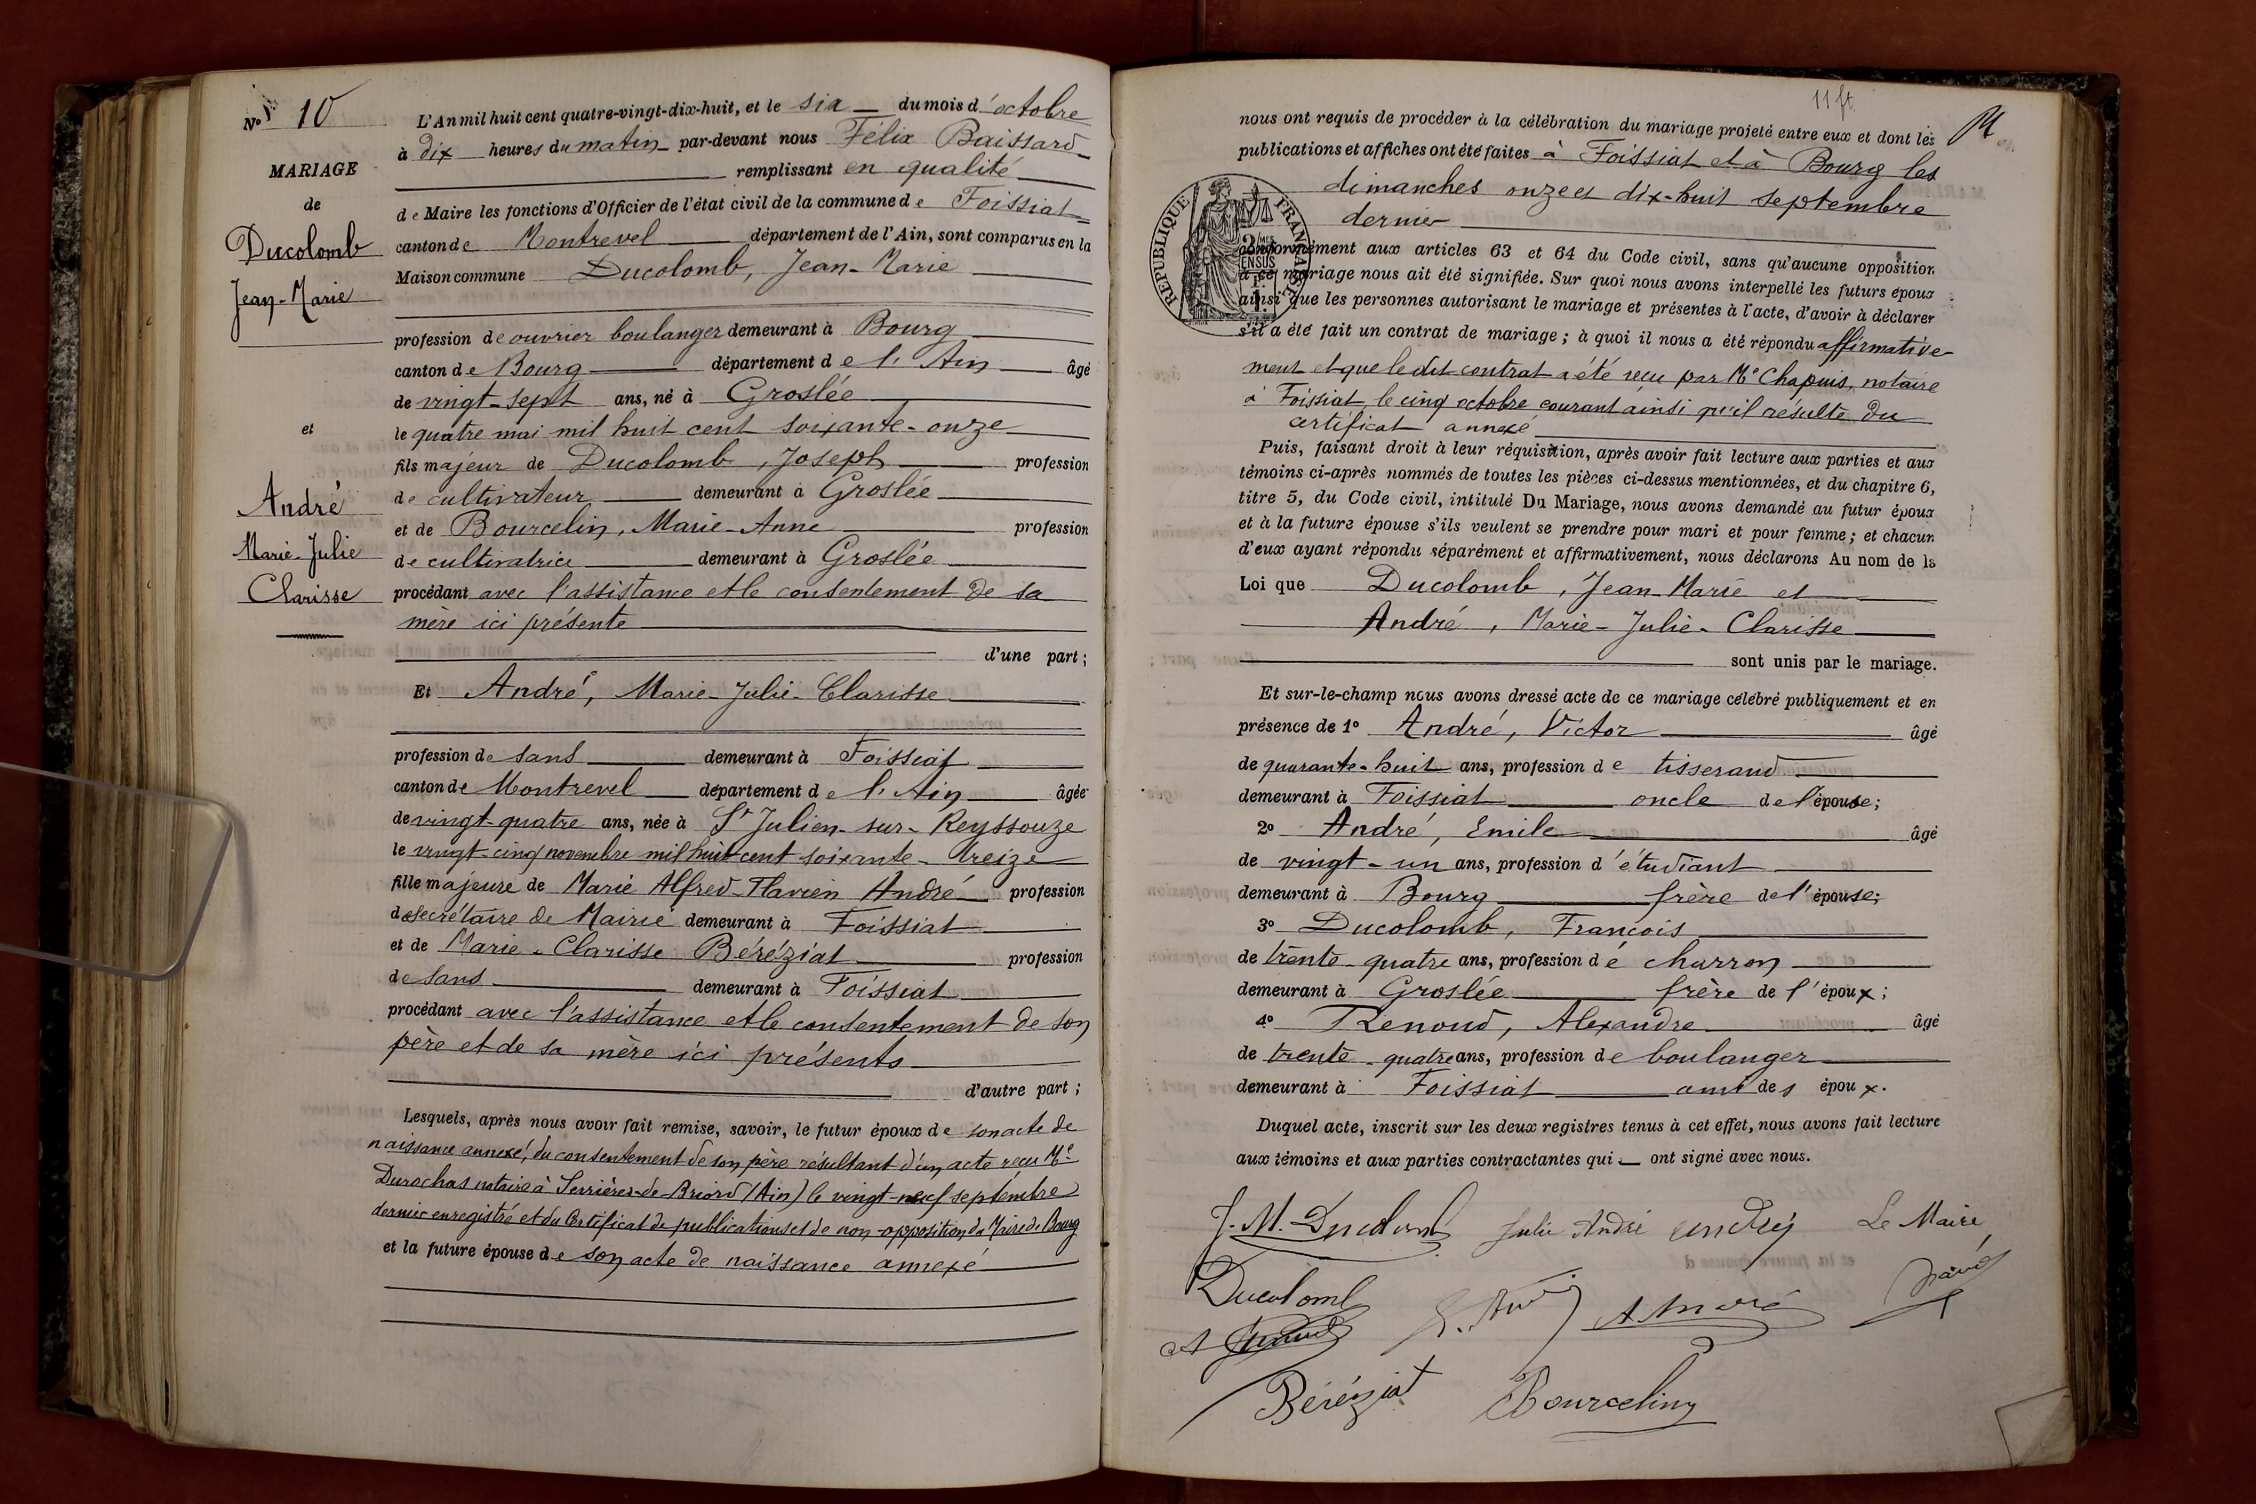 N° 10
MARIAGE
de
Ducolomb
Jean-Marie
et
André
Marie-Julie
Clarisse
L'An mil huit cent quatre-vingt-dix-huit, et le six du mois d'octobre
à dix heures du matin par-devant nous Félix Baissard
remplissant en qualité
de Maire les fonctions d'Officier de l'état civil de la commune de Foissiat
canton de Montrevel département de l'Ain, sont comparus en la
Maison commune Ducolomb, Jean-Marie
profession de ouvrier boulanger demeurant à Bourg
canton de Bourg département de l'Ain âgé
de vingt-sept ans, né à Groslée
le quatre mai mil huit cent soixante-onze
fils majeur de Ducolomb, Joseph profession
de cultivateur demeurant à Groslée
et de Bourcelin, Marie-Anne profession
de cultivatrice demeurant à Groslée
procédant avec l'assistance et le consentement de sa
mère ici présente
d'une part;
Et André, Marie-Julie-Clarisse
profession de sans demeurant à Foissiat
canton de Montrevel département de l'Ain âgée
de vingt-quatre ans, née à St Julien-sur-Reyssouze
le vingt-cinq novembre mil huit cent soixante-treize
fille majeure de Marie Alfred-Flavien André profession
de secrétaire de Mairie demeurant à Foissiat
et de Marie-Clarisse Béréziat profession
de sans demeurant à Foissiat
procédant avec l'assistance et le consentement de son
père et de sa mère ici présents
d'autre part;
Lesquels, après nous avoir fait remise, savoir, le futur époux de son acte de
naissance annexé, du consentement de son père résultant d'un acte reçu Me
Durochas notaire à Serrières-de-Briord (Ain) le vingt-neuf septembre
dernier enregistré et du Certificat de publications et de non-opposition du Maire de Bourg
et la future épouse de son acte de naissance annexé
11 ft
nous ont requis de procéder à la célébration du mariage projeté entre eux et dont les
publications et affiches ont été faites à Foissiat et à Bourg les
dimanches onze et dix-huit septembre
dernier
RÉPUBLIQUE FRANÇAISE
conformément aux articles 63 et 64 du Code civil, sans qu'aucune opposition
à ce mariage nous ait été signifiée. Sur quoi nous avons interpellé les futurs époux
ainsi que les personnes autorisant le mariage et présentes à l'acte, d'avoir à déclarer
s'il a été fait un contrat de mariage; à quoi il nous a été répondu affirmative-
ment et que le dit contrat a été reçu par Me Chapuis, notaire
à Foissiat, le cinq octobre courant ainsi qu'il résulte du
certificat annexé
Puis, faisant droit à leur réquisition, après avoir fait lecture aux parties et aux
témoins ci-après nommés de toutes les pièces ci-dessus mentionnées, et du chapitre 6,
titre 5, du Code civil, intitulé Du Mariage, nous avons demandé au futur époux
et à la future épouse s'ils veulent se prendre pour mari et pour femme; et chacun
d'eux ayant répondu séparément et affirmativement, nous déclarons Au nom de la
Loi que Ducolomb, Jean-Marie et
André, Marie-Julie-Clarisse
sont unis par le mariage.
Et sur-le-champ nous avons dressé acte de ce mariage célébré publiquement et en
présence de 1° André, Victor âgé
de quarante-huit ans, profession de tisserand
demeurant à Foissiat oncle de l'épouse;
2° André, Emile âgé
de vingt-un ans, profession d'étudiant
demeurant à Bourg frère de l'épouse;
3° Ducolomb, François
de trente-quatre ans, profession de charron
demeurant à Groslée frère de l'époux;
4° Renoud, Alexandre âgé
de trente-quatre ans, profession de boulanger
demeurant à Foissiat ami des époux.
Duquel acte, inscrit sur les deux registres tenus à cet effet, nous avons fait lecture
aux témoins et aux parties contractantes qui ont signé avec nous.
J. M. Ducolomb Julie André André Le Maire,
Ducolomb A André
Béréziat Bourcelin